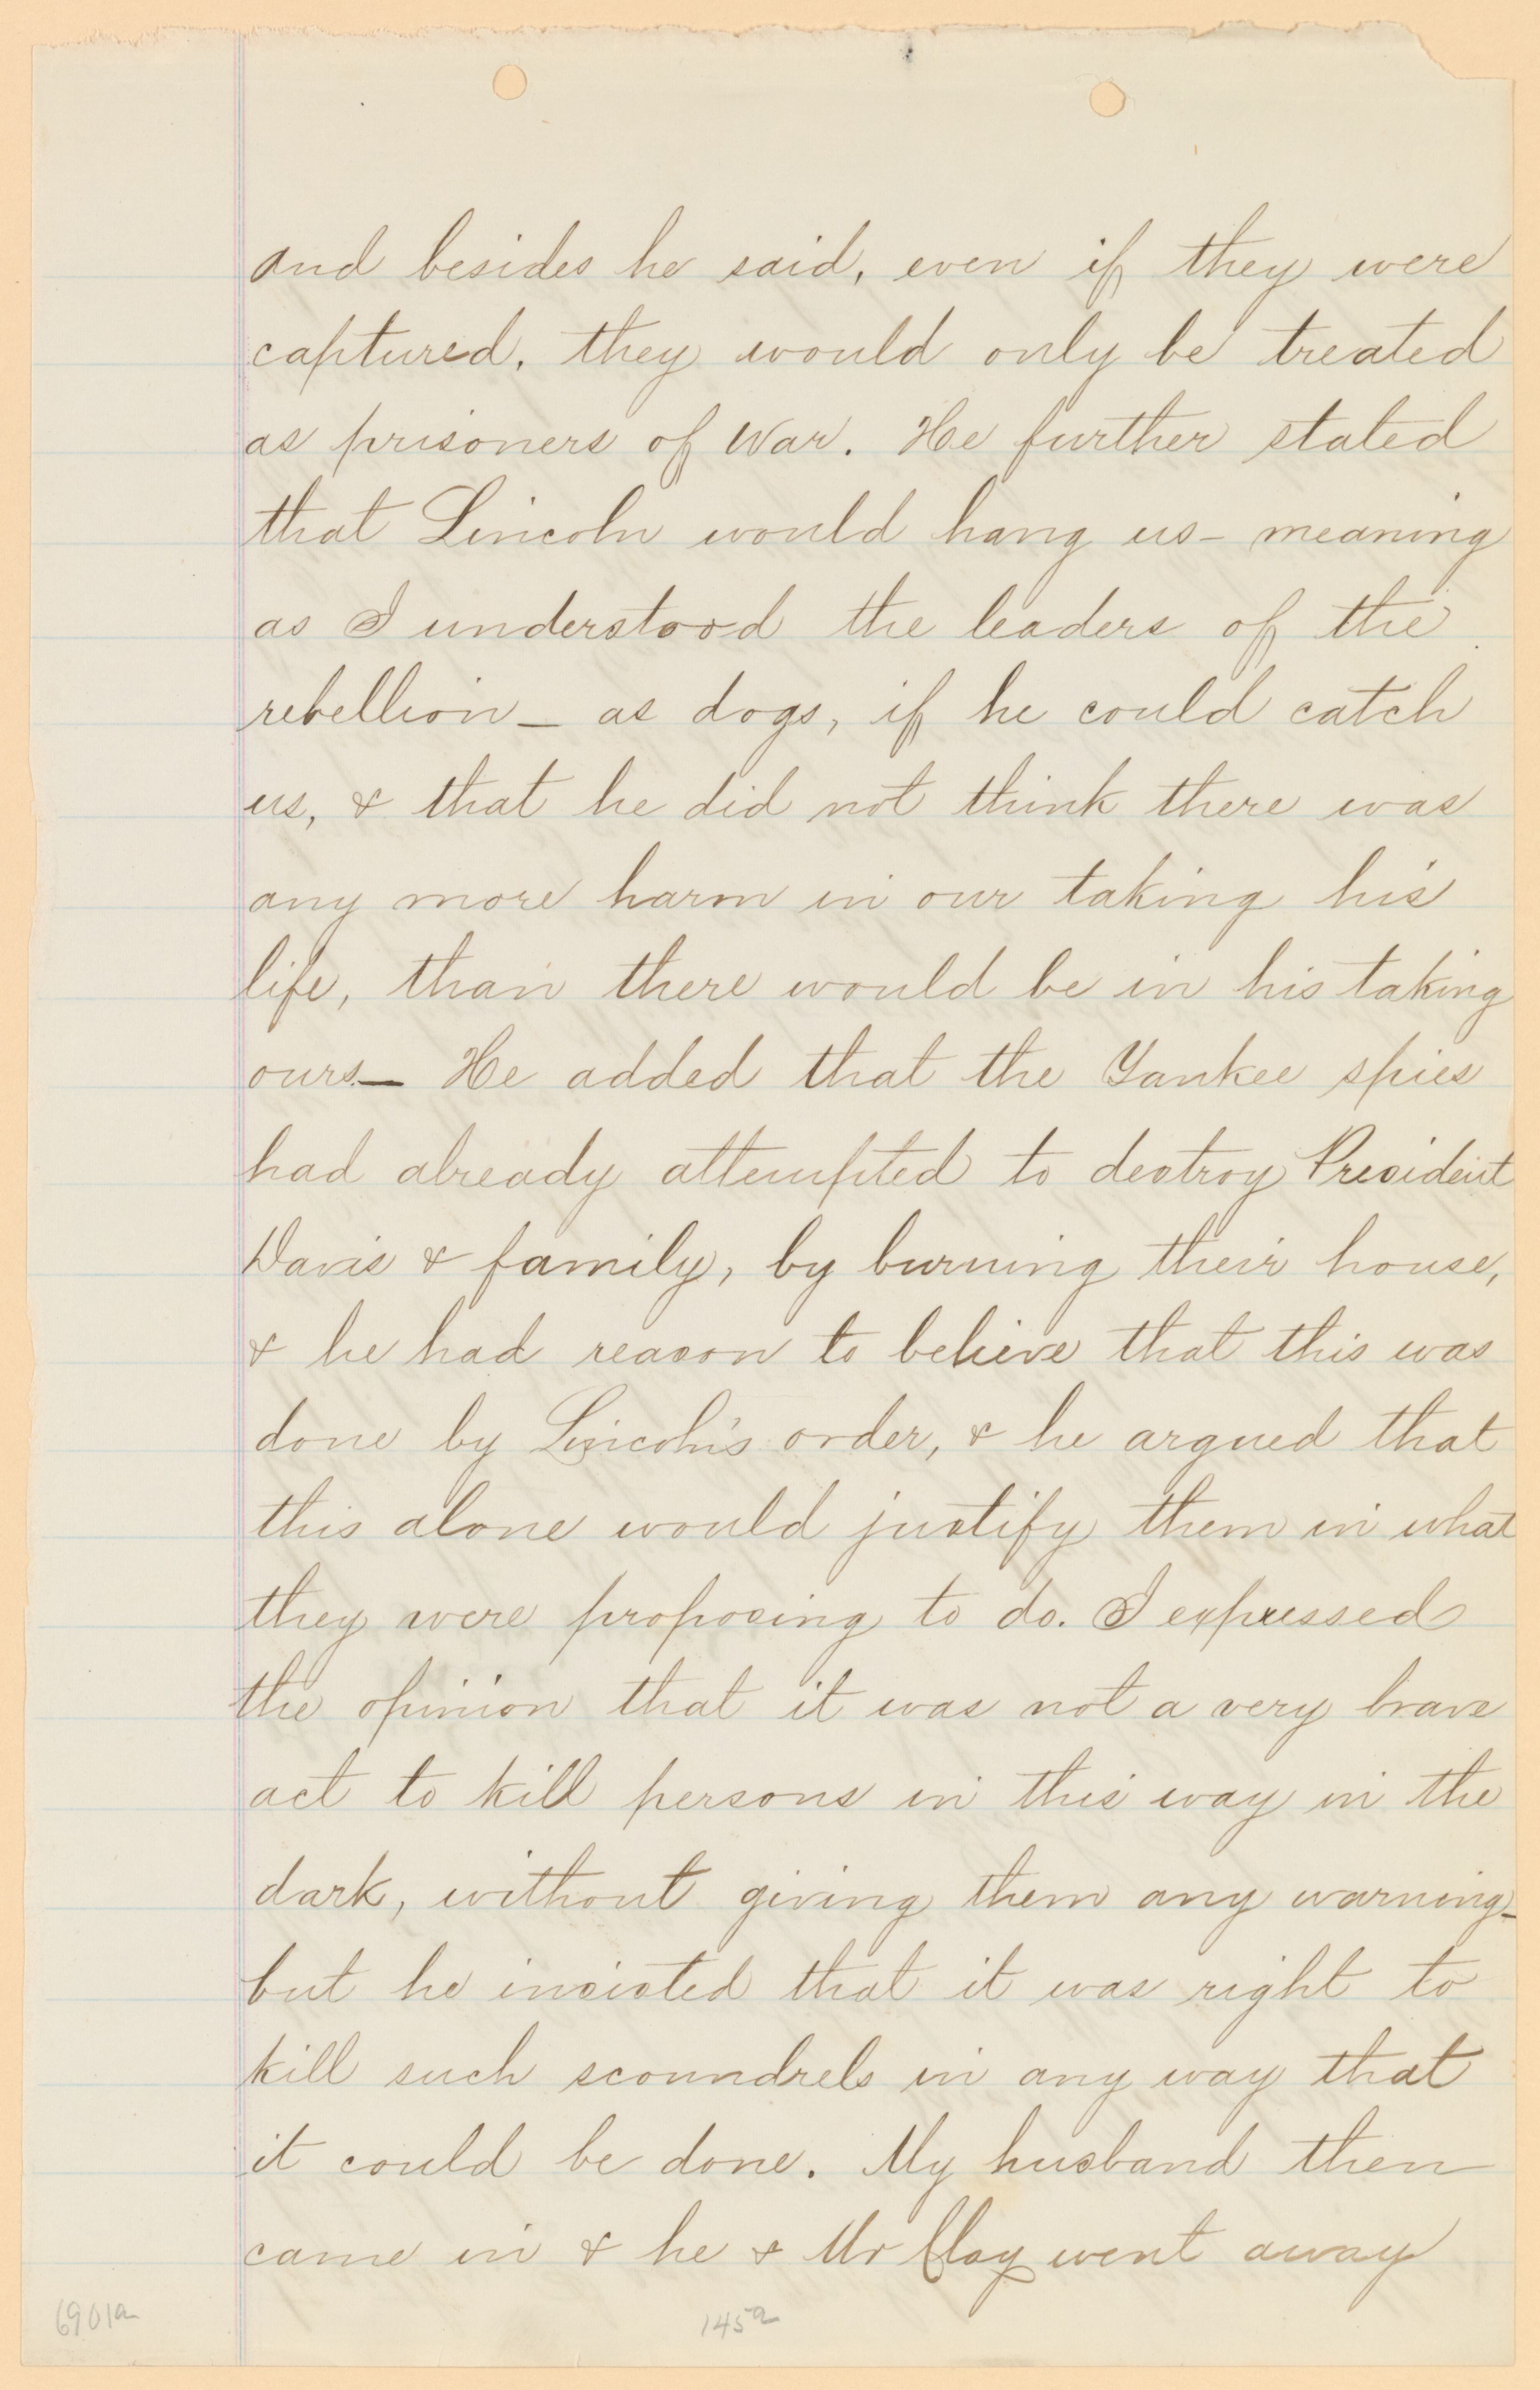 and besides he said, even if they were
captured, they would only be treated
as prisoners of War. He further stated
that Lincoln would hang us - meaning
as I understood the leaders of the
rebellion - as dogs, if he could catch
us, & that he did not think there was
any more harm in our taking his
life, than there would be in his taking
ours - He added that the Yankee spies
had already attempted to destroy President
Davis & family, by burning their house,
& he had reason to believe that this was
done by Lincoln's order, & he argued that
this alone would justify them in what
they were proposing to do. I expressed
the opinion that it was not a very brave
act to kill persons in this way in the
dark, without giving them any warning -
but he insisted that it was right to
kill such scoundrels in any way that
it could be done. My husband then
came in & he & Mr Clay went away
6901a
145a